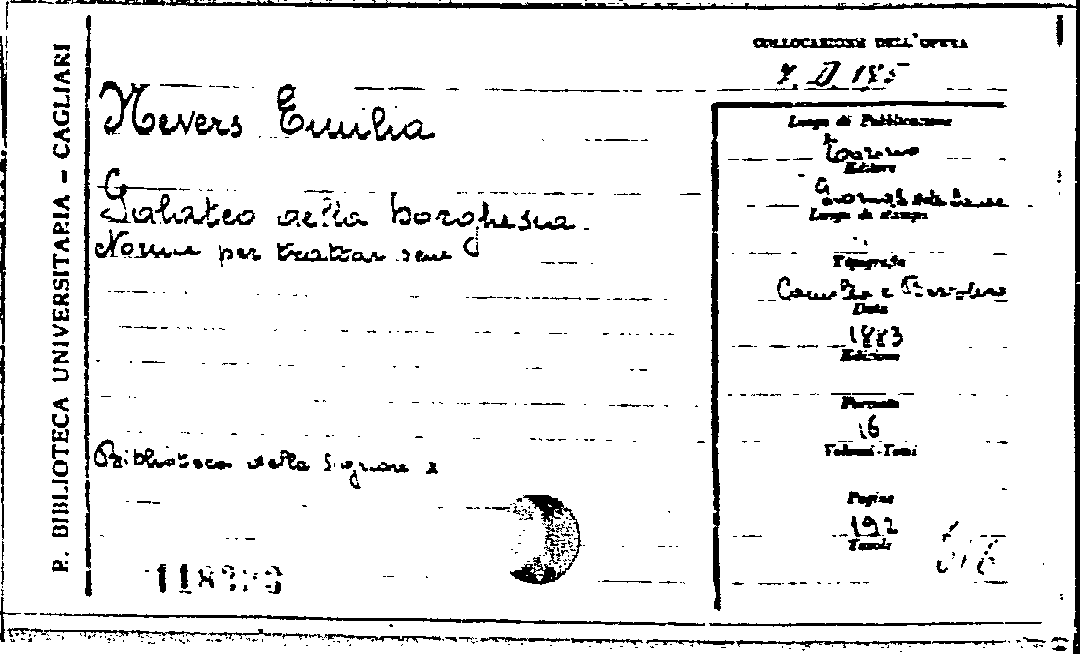 R. BIBLIOTECA UNIVERSITARIA - CAGLIARI
COLLOCAZIONE DELL'OPERA
7. D. 185
Nevers Emilia
Galateo della borghesia
Norme per trattar bene
Biblioteca della Signore
Luogo di Pubblicazione
Torino
Editore
Giornale delle Donne
Luogo di stampa
Tipografia
Camilla e Bertolero
Data
1883
Edizione
Formato
16
Volumi-Tomi
Pagine
192
Tavole